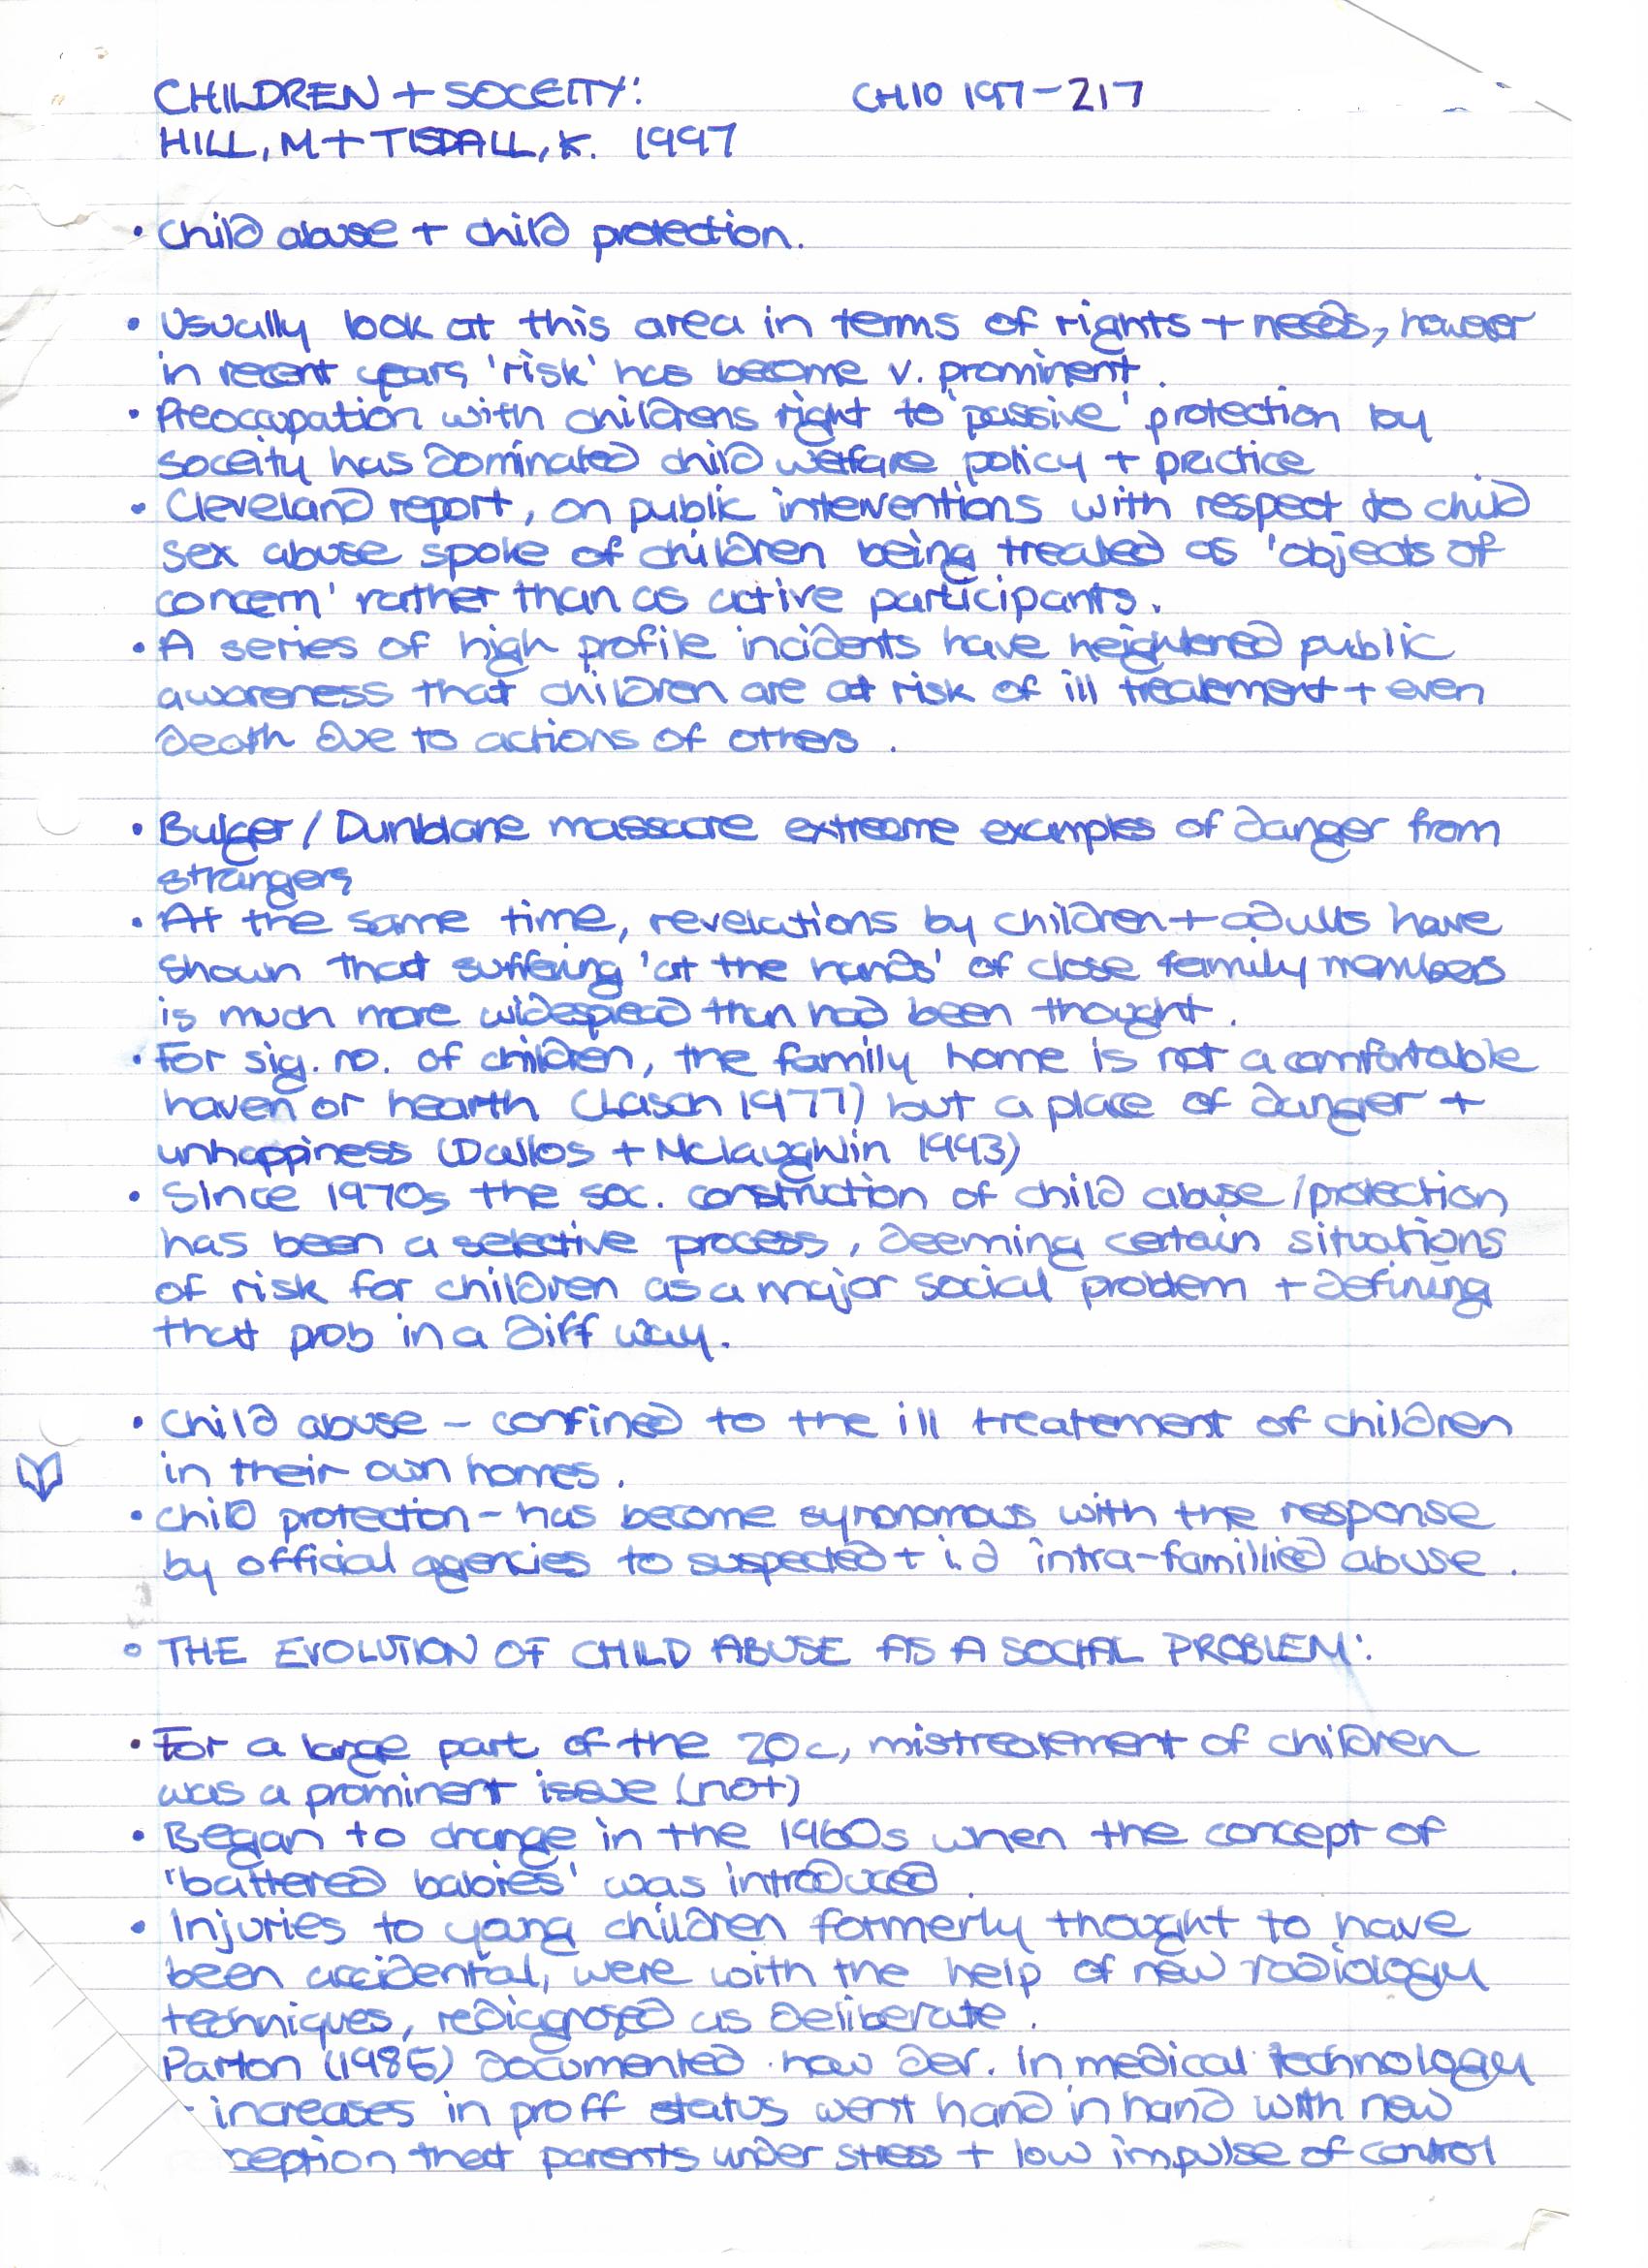 CHILDREN + SOCEITY: CH10 197-217
HILL, M + TISDALL, K. 1997
• Child abuse + child protection.
• Usually look at this area in terms of rights + needs, however
in recent years 'risk' has become v. prominent.
• Preoccupation with childrens right to 'passive' protection by
soceity has dominated child welfare policy + practice
• Cleveland report, on public interventions with respect to child
sex abuse spoke of children being treated as 'objects of
concern' rather than as active participants.
• A series of high profile incidents have heightened public
awareness that children are at risk of ill treatement + even
death due to actions of others.
• Bulger / Dunblane massacre extreeme examples of danger from
strangers
• At the same time, revelations by children + adults have
shown that suffering 'at the hands' of close family members
is much more widespread than had been thought.
• For sig. no. of children, the family home is not a comfortable
haven or hearth (Lasch 1977) but a place of danger +
unhappiness (Dallos + Mclaughlin 1993)
• Since 1970s the soc. construction of child abuse / protection
has been a selective process, deeming certain situations
of risk for children as a major social problem + defining
that prob in a diff way.
• Child abuse - confined to the ill treatement of children
in their own homes.
• child protection - has become synonomous with the response
by official agencies to suspected + i.d intra-famillied abuse.
• THE EVOLUTION OF CHILD ABUSE AS A SOCIAL PROBLEM:
• For a large part of the 20c, mistreatement of children
was a prominent issue (not)
• Began to change in the 1960s when the concept of
'battered babies' was introduced.
• Injuries to young children formerly thought to have
been accidental, were with the help of new radiology
techniques, rediagnosed as deliberate.
Parton (1985) documented how dev. in medical technology
- increases in proff status went hand in hand with new
ception that parents under stress + low impulse of control